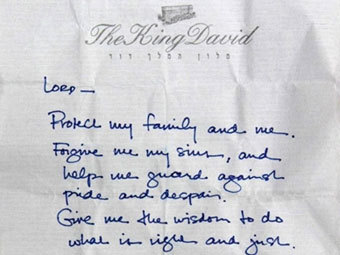 The King David
מלון המלך דוד
LORD—
Protect my family and me.
Forgive me my sins, and
help me guard against
pride and despair.
Give me the wisdom to do
what is right and just.